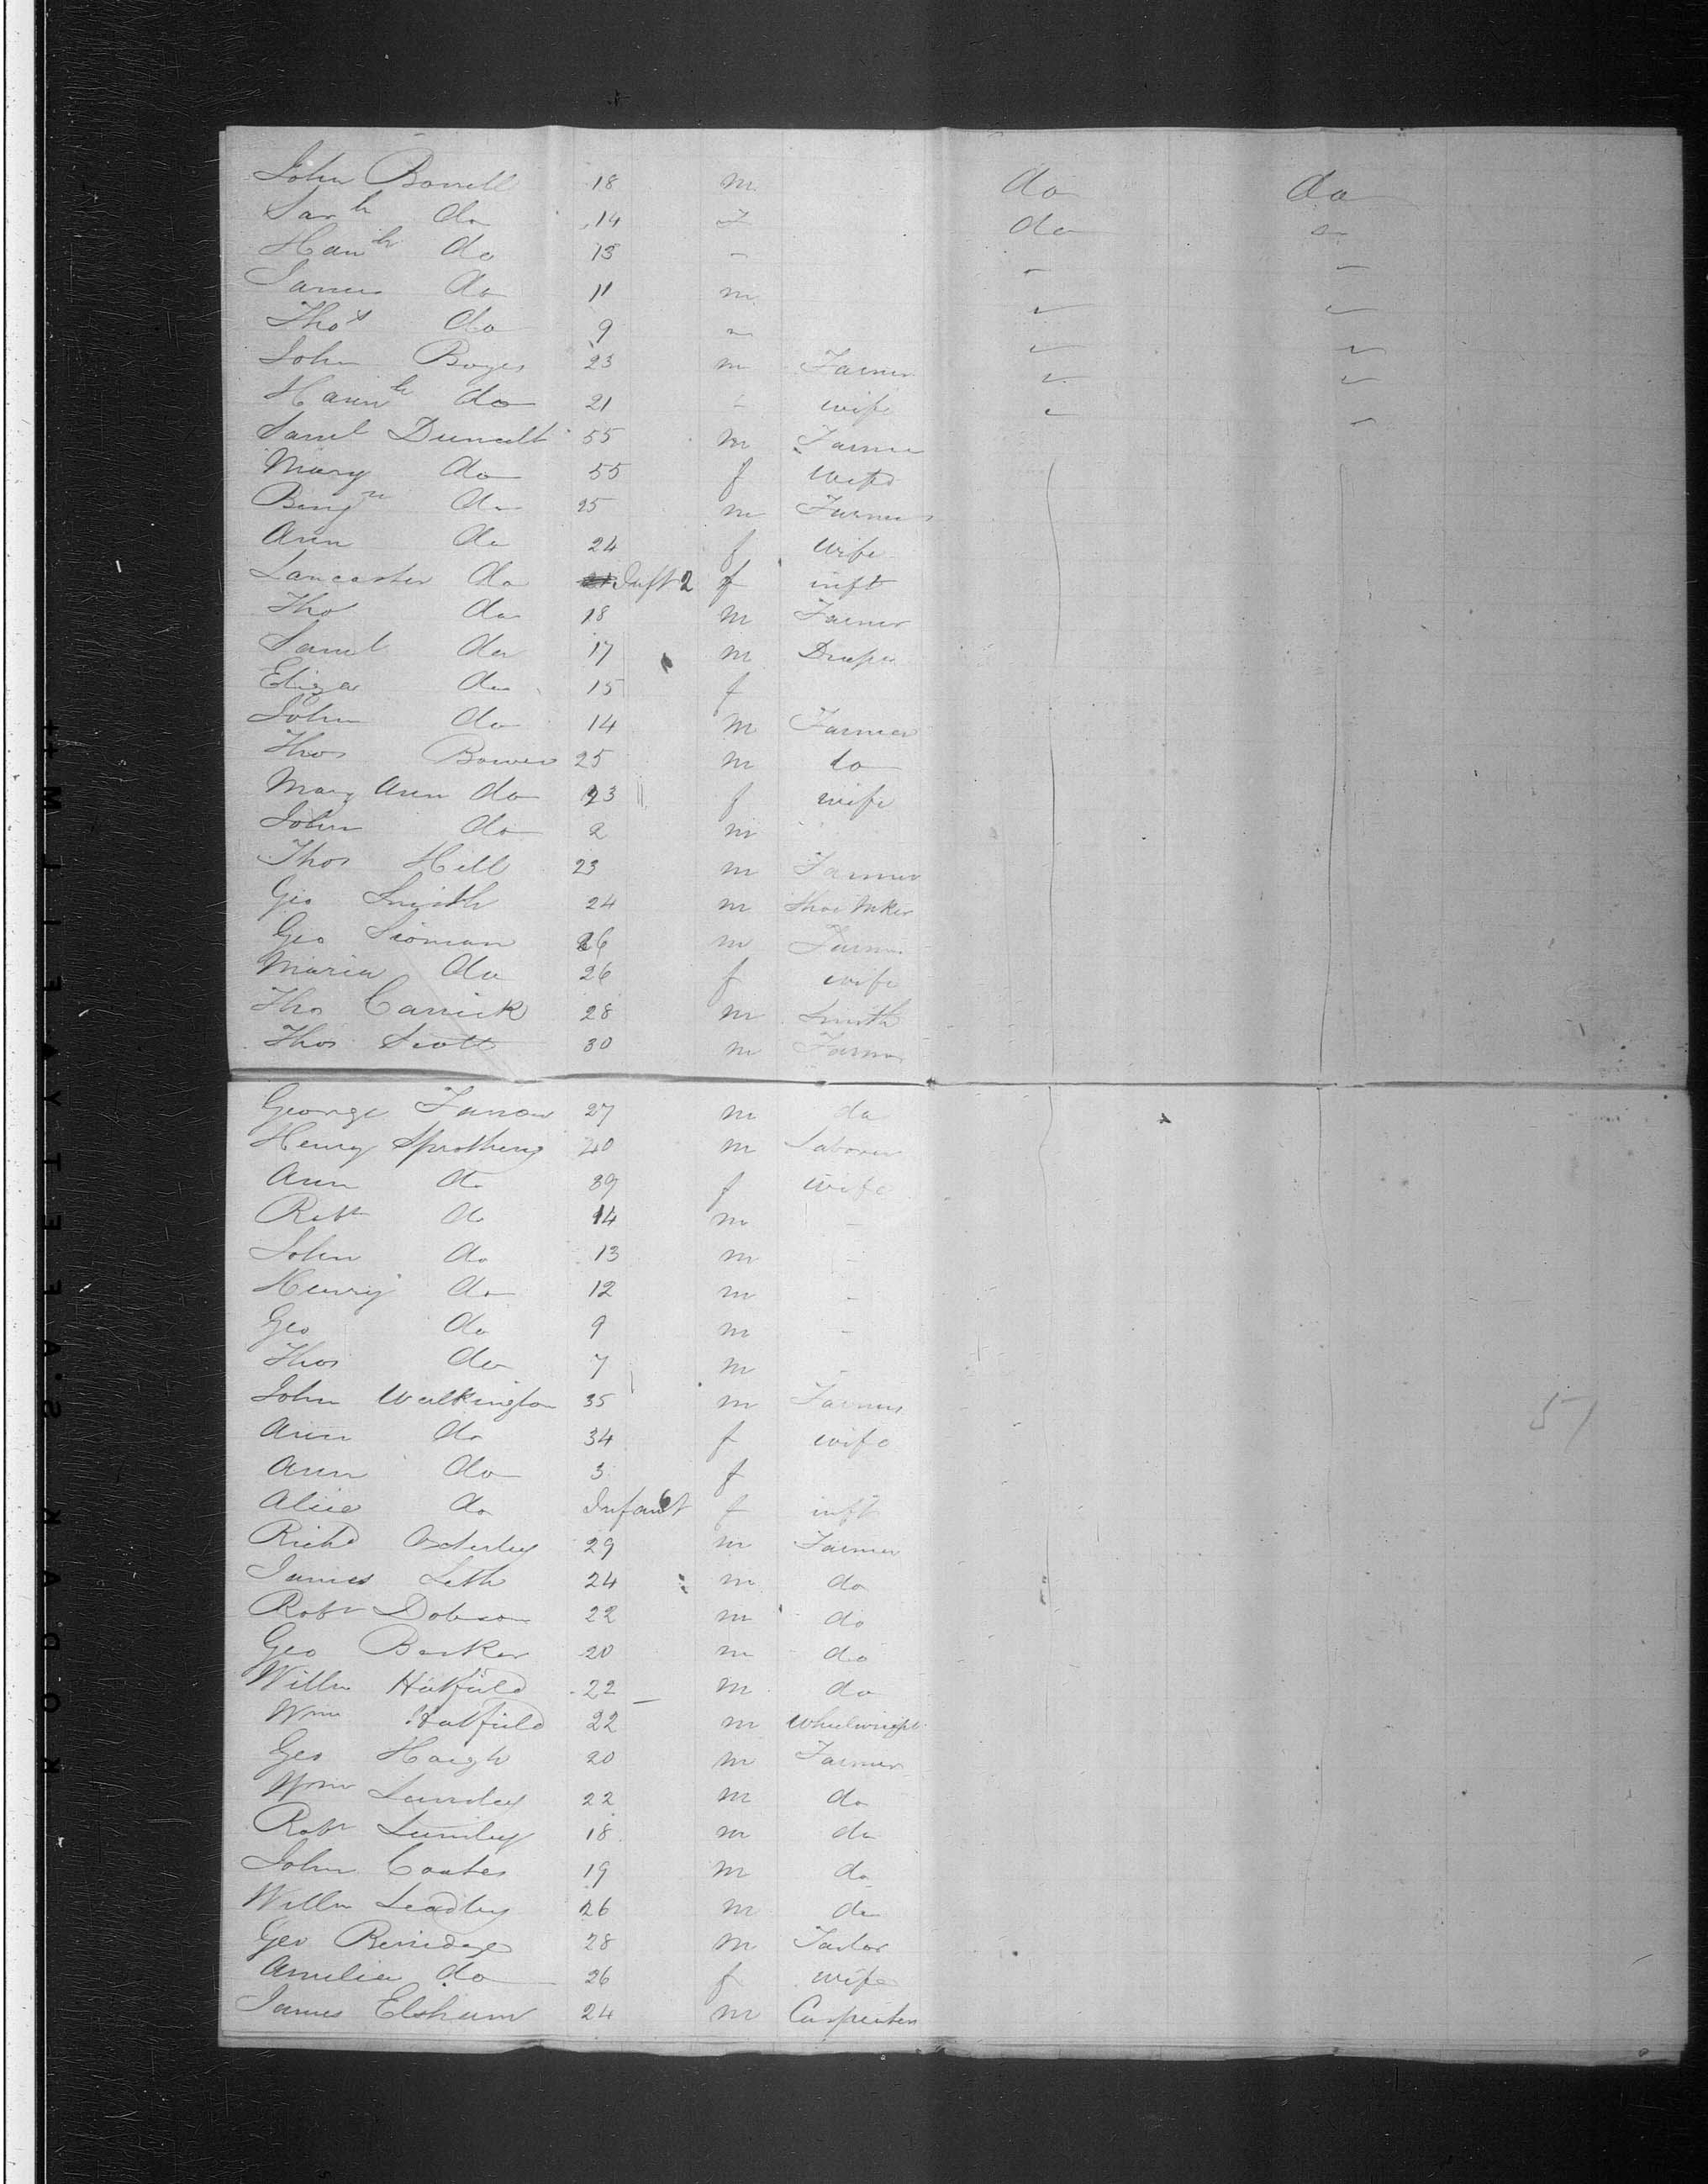 John Borrell 18 m do do
Sarh do 14 f do
Hanh do 13
James do 11 m
Thos do 9
John Boyes 23 m Farmer
Hannh do 21 wife
Saml 55 m Farmer
Mary do 55 f wife
Benjn do 25 m Farmer
Ann do 24 f wife
Lancaster do Inft 2 f inft
Tho do 18 m Farmer
Saml do 17 m Draper
Eliza do 15 f
John do 14 m Farmer
Thos Bower 25 m do
Mary Ann do 23 f wife
John do 2 m
Thos Hill 23 m Farmer
Geo Smith 24 m Shoe Mker
Geo 26 m Farmer
Maria do 26 f wife
Tho Carrick 28 m Smith
Thos Scott 30 m Farmer
George Farrow 27 m do
Henry 40 m Laborer
Ann do 39 f wife
Robt do 14 m -
John do 13 m -
Henry do 12 m -
Geo do 9 m -
Thos do 7 m -
John Walkington 35 m Farmer
Ann do 34 f wife
Ann do 3 f
Alice do Infant 6 f inft
Richd 29 m Farmer
James Leth 24 m do
Robt Dobson 22 m do
Geo Barker 20 m do
Willm Hatfield 22 m do
Wm Hatfield 22 m Wheelwright
Geo Haigh 20 m Farmer
Wm Lumley 22 m do
Robt Lumley 18 m do
John Coates 19 m do
Willm Leadley 26 m do
Geo 28 m Tailor
Amelia do 26 f wife
James Elsham 24 m Carpenter
57